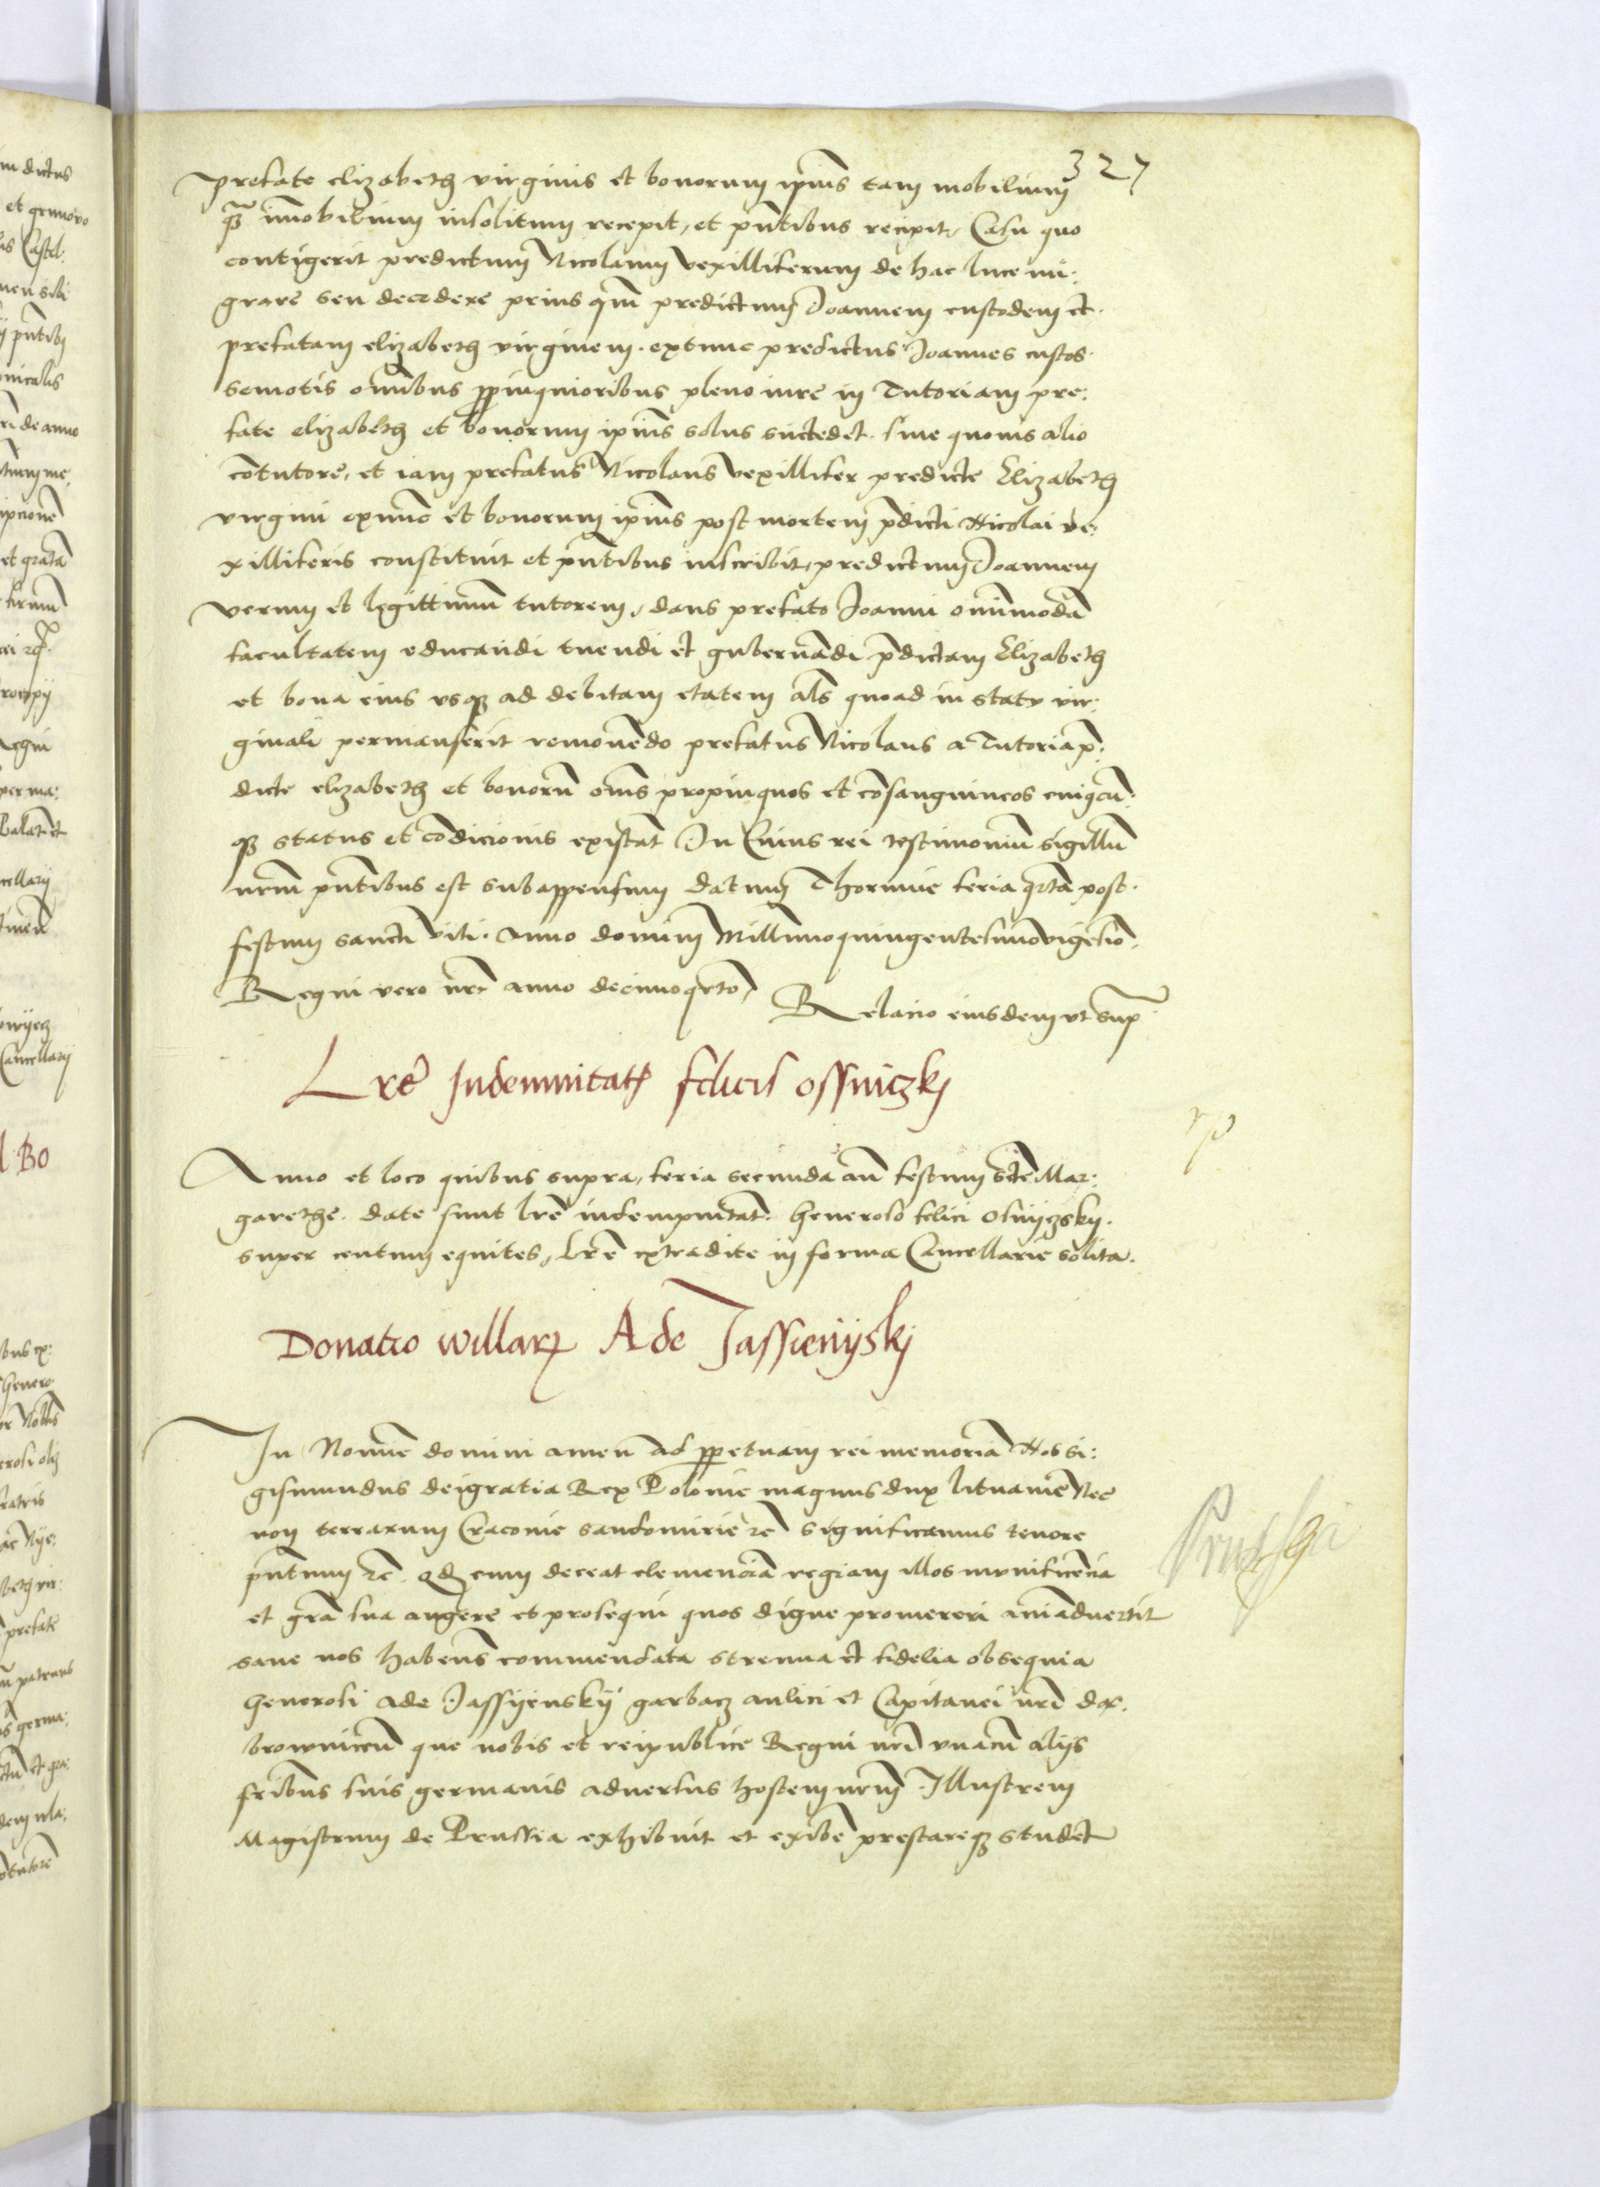 327
prefate elizabeth virginis et bonorum ipius tam mobilium
q̃ imobilium insolitum recepit, et pn̄tibus recipit, Casu quo
contigerit predictum Nicolaum vexilliferum de hac luce mi:
grare seu decedere prius qm̄ predictum Joannem custodem et
prefatam elizabeth virginem. extunc predictus Joannes custos
semotis om̄ibus ꝓpinquioribus pleno iure in Tutoriam pre:
fate elizabeth et bonorum ipius solus succedet. sine quovis alio
cōtutore, et iam prefatus Nicolaus vexillifer predicte Elizabeth
virgini extunc et bonorum ipius post mortem p̄dicti Nicolai ve:
xilliferis constituit et pn̄tibus inscribit, predictum Joannem
verum et legittimū tutorem, dans prefato Joanni om̄imodā
facultatem educandi tuendi et gubernādi p̄dictam Elizabeth
et bona eius usqȝ ad debitam etatem als quoad in statu vir:
ginali permanserit removēdo prefatus Nicolaus a Tutoria p̄:
dicte elizabeth et bonorū om̄s propinquos et cōsanguineos cuiuscū:
qȝ status et cōdicionis existāt In Cuius rei testimoniū sigillū
nr̄m pn̄tibus est subappensum datum Thorunie feria qrta post
festum sancti viti. anno domini Millimoquingentesimovigesio.
Regni vero nr̄i anno decimoqrto,
Relacio eiusdem ut sup̄
Lrē Indemnitatꝭ felicis ossniczkj
Anno et loco quibus supra, feria secunda añ festum scte Mar:
garethe. date sunt lrē indempnitat. Generoso felici Osnyczky.
super centum equites, Lrē extradite in forma Cancellarie solita.
Donatio willarꝝ Ade Jassienÿskj
In Nomie domini amen ad ꝑpetuam rei memoriā Nos Si:
gismundus dei gratia Rex Polonie magnus dux lituanie Nec
non terrarum Cracovie sandomirie zc̄ significamus tenore
pn̄tium zc̄ qd cum deceat clemenciā regiam illos munificēcia
et grā sua augere et prosequi quos digne promereri aniadvertit
sane nos habens commendata strenua et fidelia obsequia
Generosi Ade Jassyensky garbacz aulici et Capitanei nr̄i dą:
browniceñ que nobis et reipublice Regni nr̄i unacū alijs
fribus suis germanis adversus hostem nr̄m Illustrem
Magistrum de Prussia exhibuit et exibē prestareqȝ studet